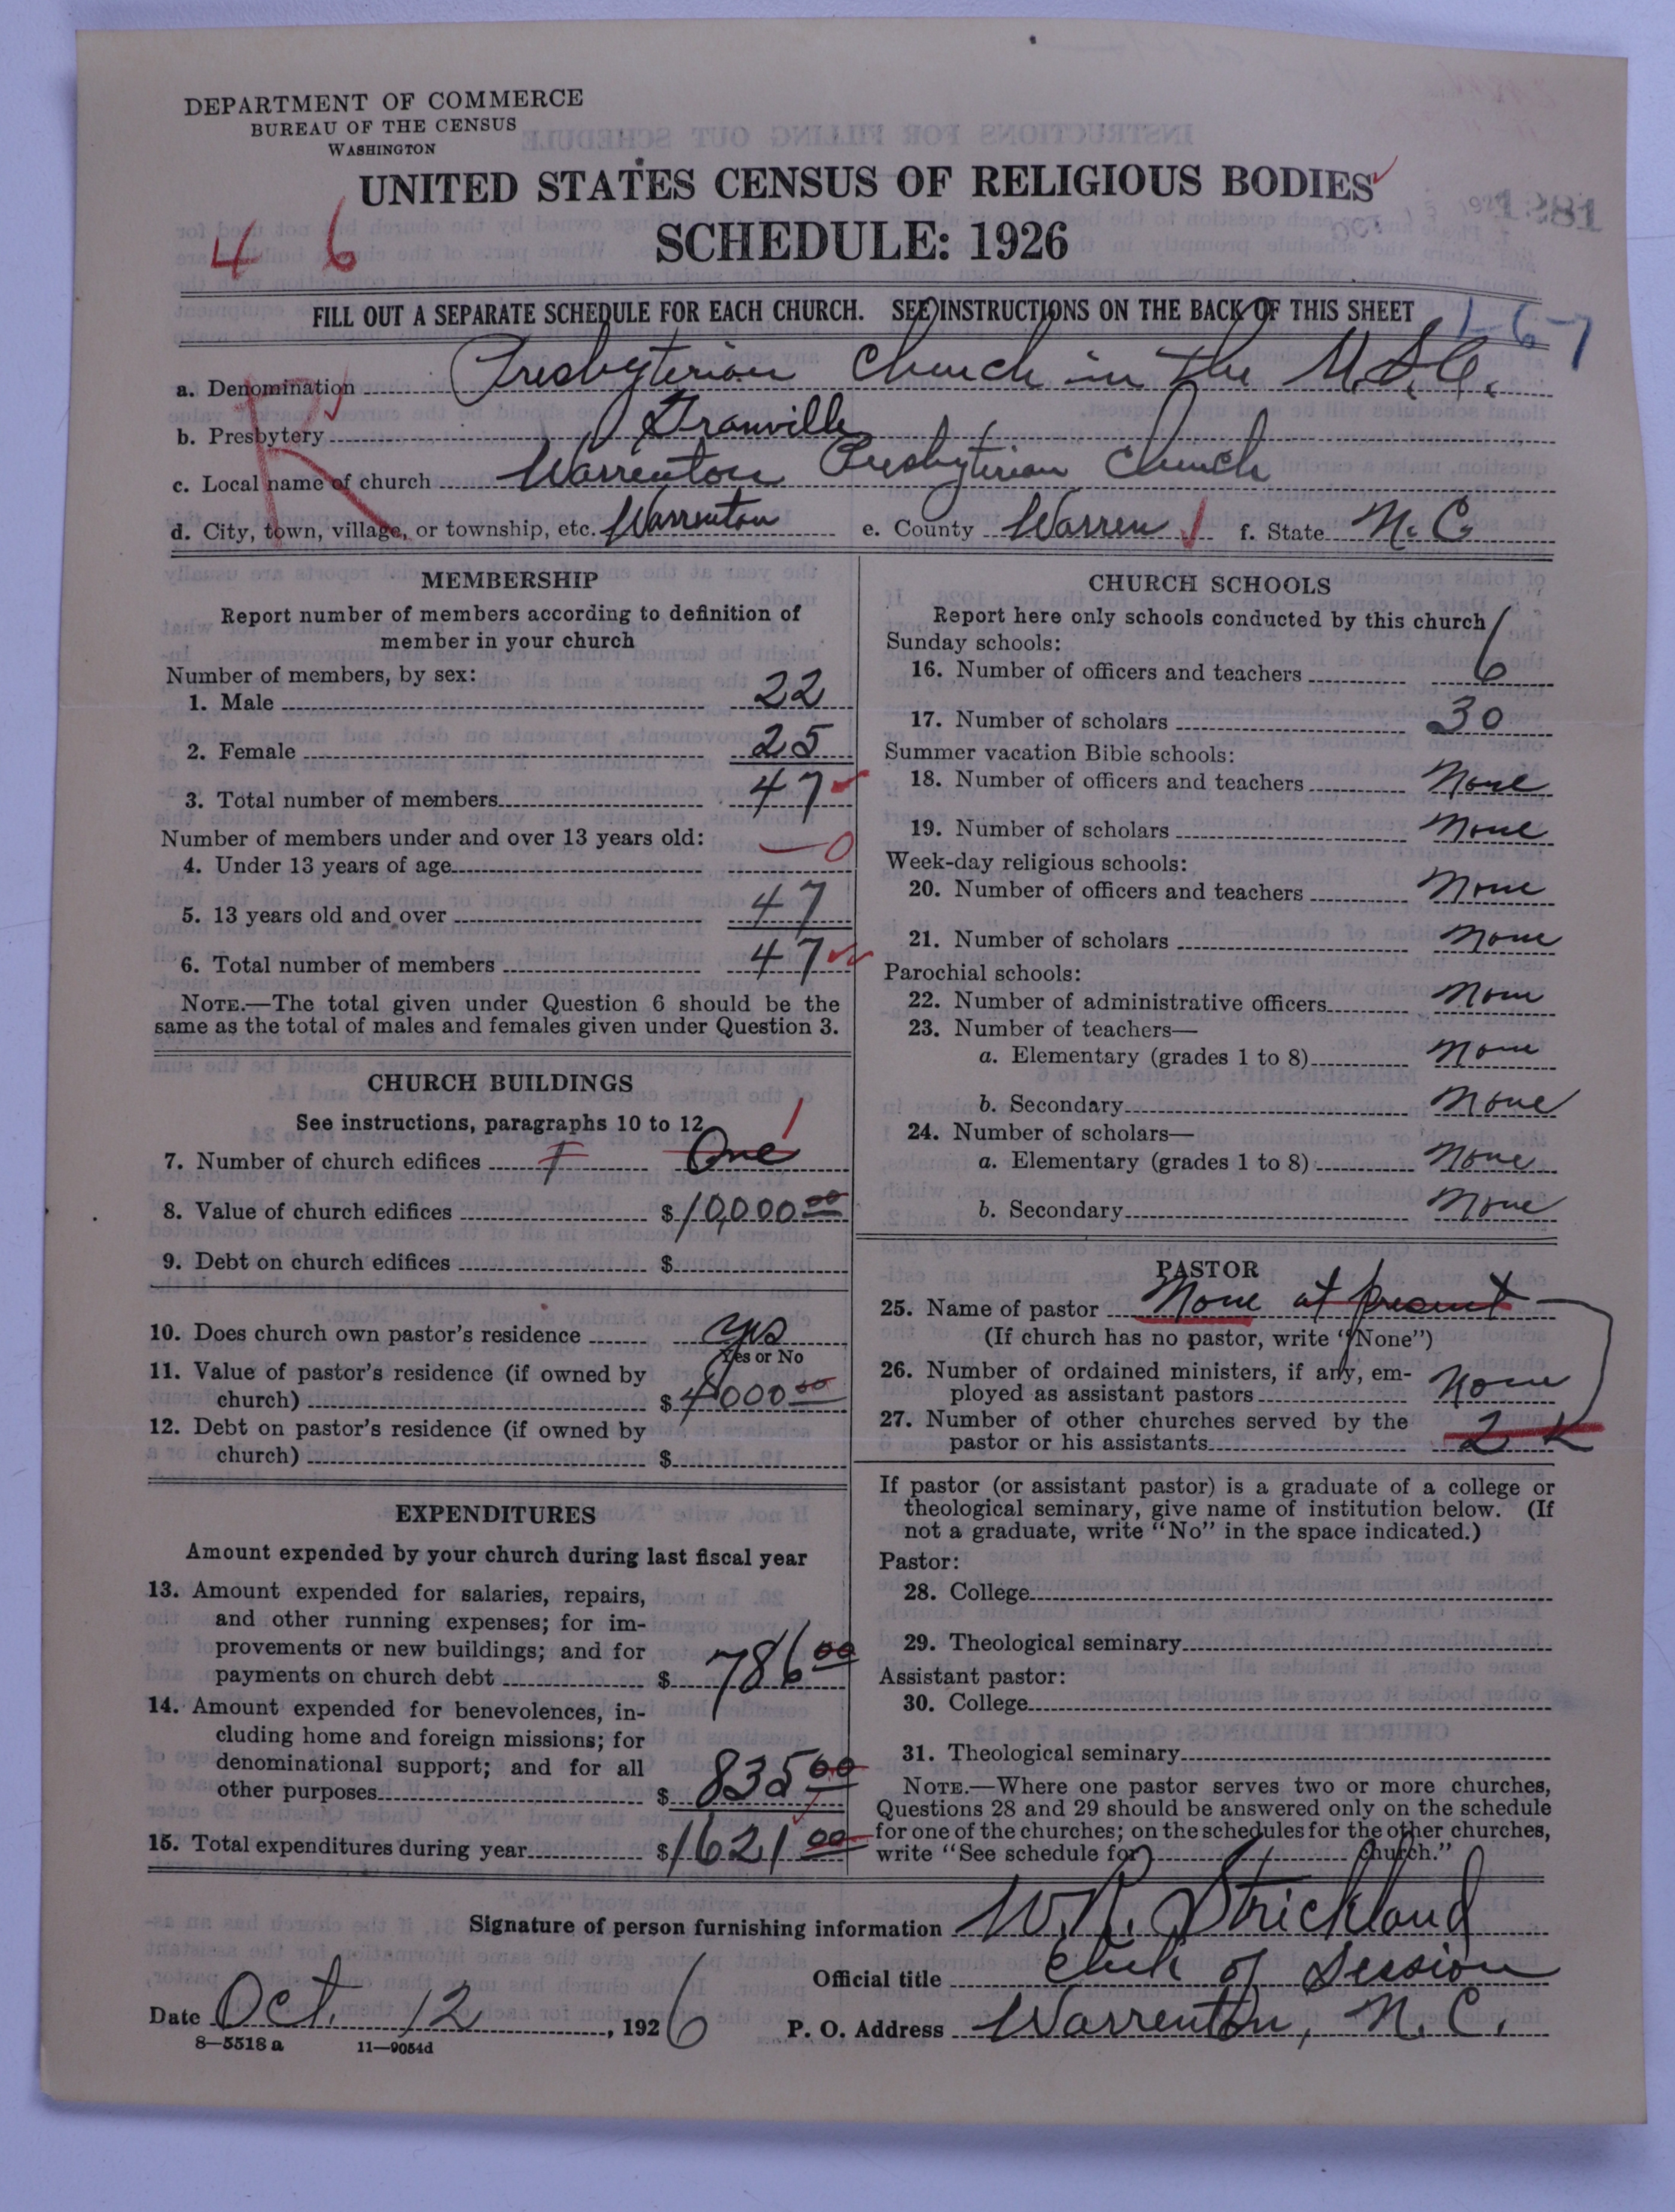 DEPARTMENT OF COMMERCE
BUREAU OF THE CENSUS
WASHINGTON
UNITED STATES CENSUS OF RELIGIOUS BODIES
SCHEDULE: 1926
4 6
1281
FILL OUT A SEPARATE SCHEDULE FOR EACH CHURCH. SEE INSTRUCTIONS ON THE BACK OF THIS SHEET
1-6-7
a. Denomination Presbyterian Church in the U.S.
b. Presbytery Granville
c. Local name of church Warrenton Presbyterian Church
d. City, town, village, or township, etc. Warrenton e. County Warren f. State N.C.
MEMBERSHIP
Report number of members according to definition of
member in your church
Number of members, by sex:
1. Male 22
2. Female 25
3. Total number of members 47
Number of members under and over 13 years old:
4. Under 13 years of age — 0
5. 13 years old and over 47
6. Total number of members 47
NOTE.—The total given under Question 6 should be the
same as the total of males and females given under Question 3.
CHURCH BUILDINGS
See instructions, paragraphs 10 to 12
7. Number of church edifices One 1
8. Value of church edifices $10,000.00
9. Debt on church edifices $
10. Does church own pastor's residence yes
Yes or No
11. Value of pastor's residence (if owned by
church) $4000.00
12. Debt on pastor's residence (if owned by
church) $
EXPENDITURES
Amount expended by your church during last fiscal year
13. Amount expended for salaries, repairs,
and other running expenses; for im-
provements or new buildings; and for
payments on church debt $ 786.00
14. Amount expended for benevolences, in-
cluding home and foreign missions; for
denominational support; and for all
other purposes $ 835.00
15. Total expenditures during year $1621.00
CHURCH SCHOOLS
Report here only schools conducted by this church
Sunday schools:
16. Number of officers and teachers 6
17. Number of scholars 30
Summer vacation Bible schools:
18. Number of officers and teachers None
19. Number of scholars None
Week-day religious schools:
20. Number of officers and teachers None
21. Number of scholars None
Parochial schools:
22. Number of administrative officers None
23. Number of teachers—
a. Elementary (grades 1 to 8) None
b. Secondary None
24. Number of scholars—
a. Elementary (grades 1 to 8) None
b. Secondary None
PASTOR
25. Name of pastor None at present
(If church has no pastor, write "None")
26. Number of ordained ministers, if any, em-
ployed as assistant pastors None
27. Number of other churches served by the
pastor or his assistants 2
If pastor (or assistant pastor) is a graduate of a college or
theological seminary, give name of institution below. (If
not a graduate, write "No" in the space indicated.)
Pastor:
28. College
29. Theological seminary
Assistant pastor:
30. College
31. Theological seminary
NOTE.—Where one pastor serves two or more churches,
Questions 28 and 29 should be answered only on the schedule
for one of the churches; on the schedules for the other churches,
write "See schedule for church."
Signature of person furnishing information W.R. Strickland
Official title Clerk of Session
Date Oct. 12, 1926 P. O. Address Warrenton, N.C.
8—5518 a 11—9054d